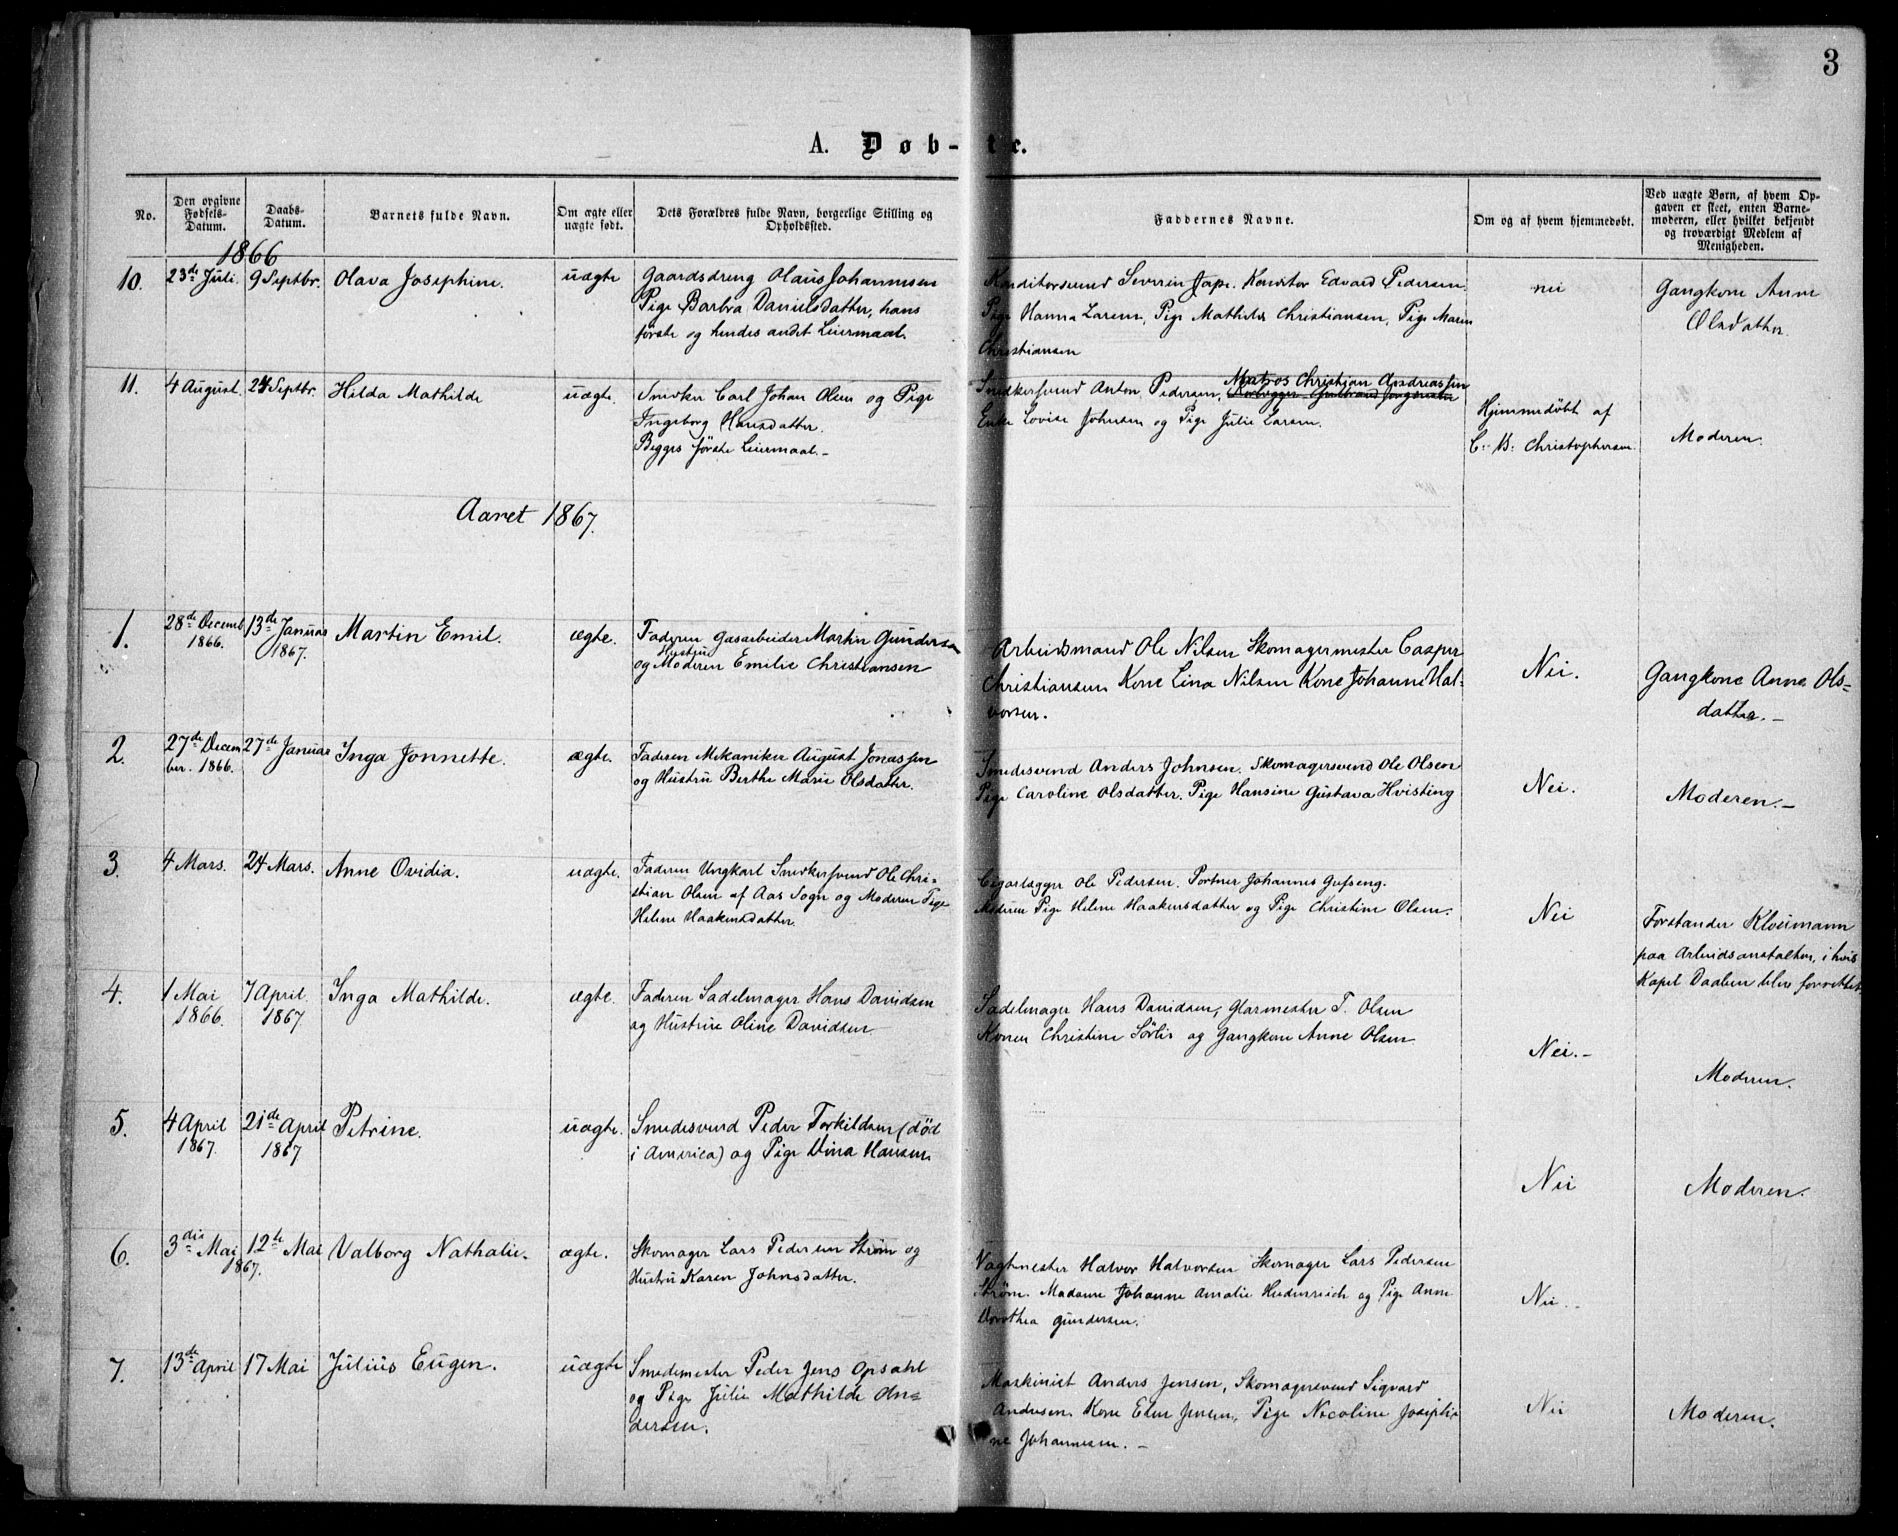 3
A. Døb-te.
No.
Den opgivne Fødsels-Datum.
Daabs-Datum.
Barnets fulde Navn.
Om ægte eller uægte født.
Dets Forældres fulde Navn, borgerlige Stilling og Opholdssted.
Faddernes Navne.
Om og af hvem hjemmedøbt.
Ved uægte Børn, af hvem Opgaven er skeet, enten Barnemoderen, eller hvilket bekjendt og troværdigt Medlem af Menigheden.
1866
10. 23de Juli. 9 Septbr. Olava Josephine. uægte
Gaardsdreng Olaus Johannesen
Pige Barbra Danielsdatter, hans
første og hendes andet Leiermaal.
Konditorsvend Severin Jape. Konditor Edvard Pedersen
Pige Hanna Larsen, Pige Mathilde Christiansen, Pige Maren
Christiansen
nei
Gangkone Anne
Olsdatter.
11. 4 August. 24 Septbr. Hilda Mathilde uægte.
Snedker Carl Johan Olsen og Pige
Ingeborg Hansdatter.
Begges første Leiermaal.-
Matros Christian Andreassen
Snedkersvend Anton Pedersen,
Enke Lovise Johnsen og Pige Julie Larsen.
Hjemmedøbt af
C. B. Christophersen.
Moderen.
Aaret 1867.
1. 28de Decemb. 1866. 13de Januar 1867. Martin Emil. ægte.
Faderen Gasarbeider Martin Gundersen
Hustru
og Moderen Emilie Christiansen
Arbeidsmand Ole Nilsen Skomagermester Casper
Christiansen Kone Lina Nilsen Kone Johanne Hal-
vorsen.
Nei.
Gangkone Anne Ols-
datter.-
2. 27de Decem ber. 1866. 27de Januar Inga Jonnette. ægte.
Faderen Mekaniker August Jonassen
og Hustru Berthe Marie Olsdatter.
Smedesvend Anders Johnsen. Skomagersvend Ole Olsen
Pige Caroline Olsdatter. Pige Hansine Gustava Hvisting
Nei.
Moderen.-
3. 4 Mars. 24 Mars. Anne Ovidia. uægte.
Faderen Ungkarl Snedkersvend Ole Chri-
stian Olsen af Aas Sogn og Moderen Pige
Helene Haakensdatter.
Cigarlægger Ole Pedersen. Portner Johannes
Moderen Pige Helene Haakensdatter og Pige Christine Olsen.
Nei
Forstander Kloumann
paa Arbeidsanstalten, i hvis
Kapel Daaben blev forrettet.
4. 1 Mai 1866. 7 April 1867 Inga Mathilde. ægte.
Faderen Sadelmager Hans Davidsen
og Hustrue Oline Davidsen
Sadelmager Hans Davidsen, Glarmester T. Olsen
Konen Christine Sørlie og Gangkone Anne Olsen
Nei.-
Moderen.
5. 4 April 1867. 21de April 1867 Petrine. uægte.
Smedesvend Peder Torkildsen (død
i America) og Pige Dina Hansen
Nei
Moderen.
6. 3die Mai 12te Mai 1867. Valborg Nathalie. ægte.
Skomager Lars Pedersen Strøm og
Hustru Karen Johnsdatter.
Vagtmester Halvor Halvorsen Skomager Lars Pedersen
Strøm. Madame Johanne Amalie og Pige Anne
Dorothea Gundersen.
Nei.
7. 13de April 17 Mai Julius Eugen. uægte
Smedemester Peder Jens Opsahl
og Pige Julie Mathilde An-
dersen.
Maskinist Anders Jensen, Skomagersvend Sigvard
Andresen. Kone Elen Jensen, Pige Nicoline Josephi-
ne Johannesen.-
Nei
Moderen.